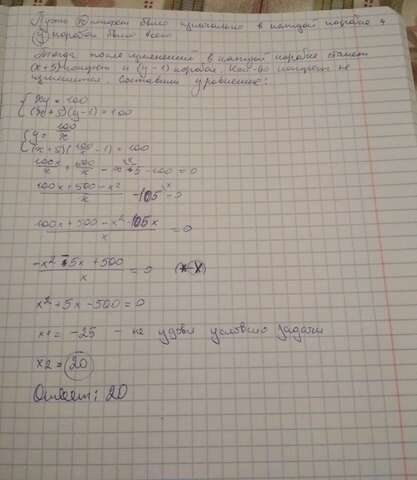 Пусть x конфет было изначально в каждой коробке и
y коробок было всего
Тогда после изменений в каждой коробке станет
(x+5) конфет и (y-1) коробок. Кол-во конфет не
изменится. Составим уравнение:
{ xy = 100
(x+5)(y-1) = 100
{ y = 100/x
(x+5)(100/x - 1) = 100
100x/x + 500/x - x - 5 - 100 = 0
(100x + 500 - x²)/x - 105 = 0
(100x + 500 - x² - 105x)/x = 0
(-x² - 5x + 500)/x = 0
x² + 5x - 500 = 0
x1 = -25 - не удовл условию задачи
x2 = 20
Ответ: 20